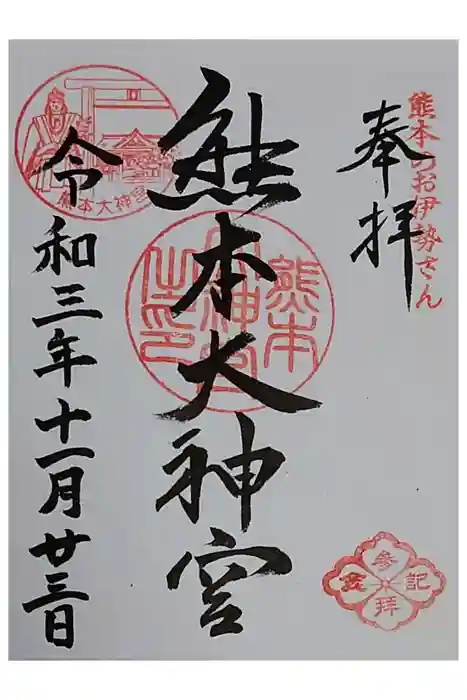 熊本のお伊勢さん
奉拝
熊本大神宮
熊本大神宮之印
令和三年十一月廿三日
熊本大神宮
参拝記念